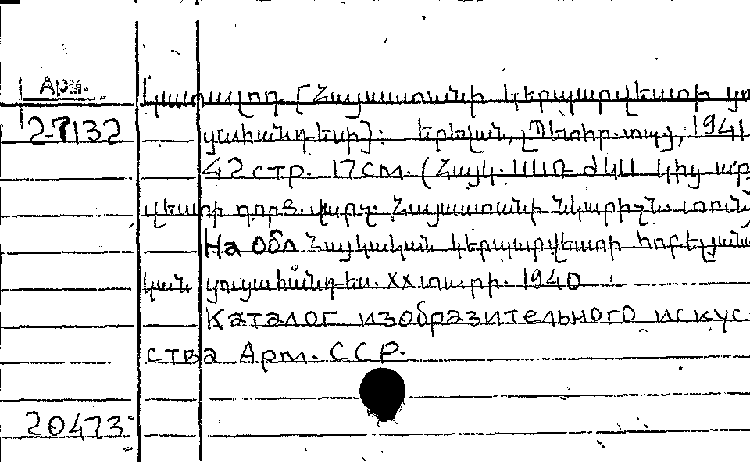 Арм.
2-7132
Կատալոդ [Հայաստանի կերպարվեստի ցու
ցահանդեսի]: Երևան, [Պետհր. տպ, 1941
42 стр. 17см. (Հայկ. ՍՍՌ ԺԿՍ կից
վեստի գործ. վարչ. Հայաստանի նկարիչն. տուն
На обл Հայկական կերպարվեստի հոբելյանա
կան ցուցահանդես. XX տարի. 1940
Каталог изобразительного искус-
ства Арм. ССР.
20473